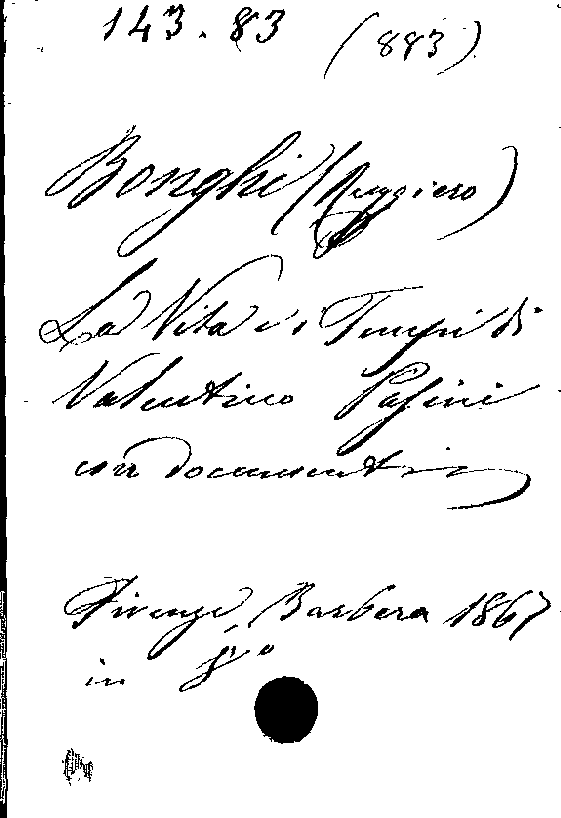 143.83 (883)
Bonghi (Ruggiero)
La Vita e i Tempi di
Valentino Pasini
con documenti
Firenze, Barbera 1867
in 8º